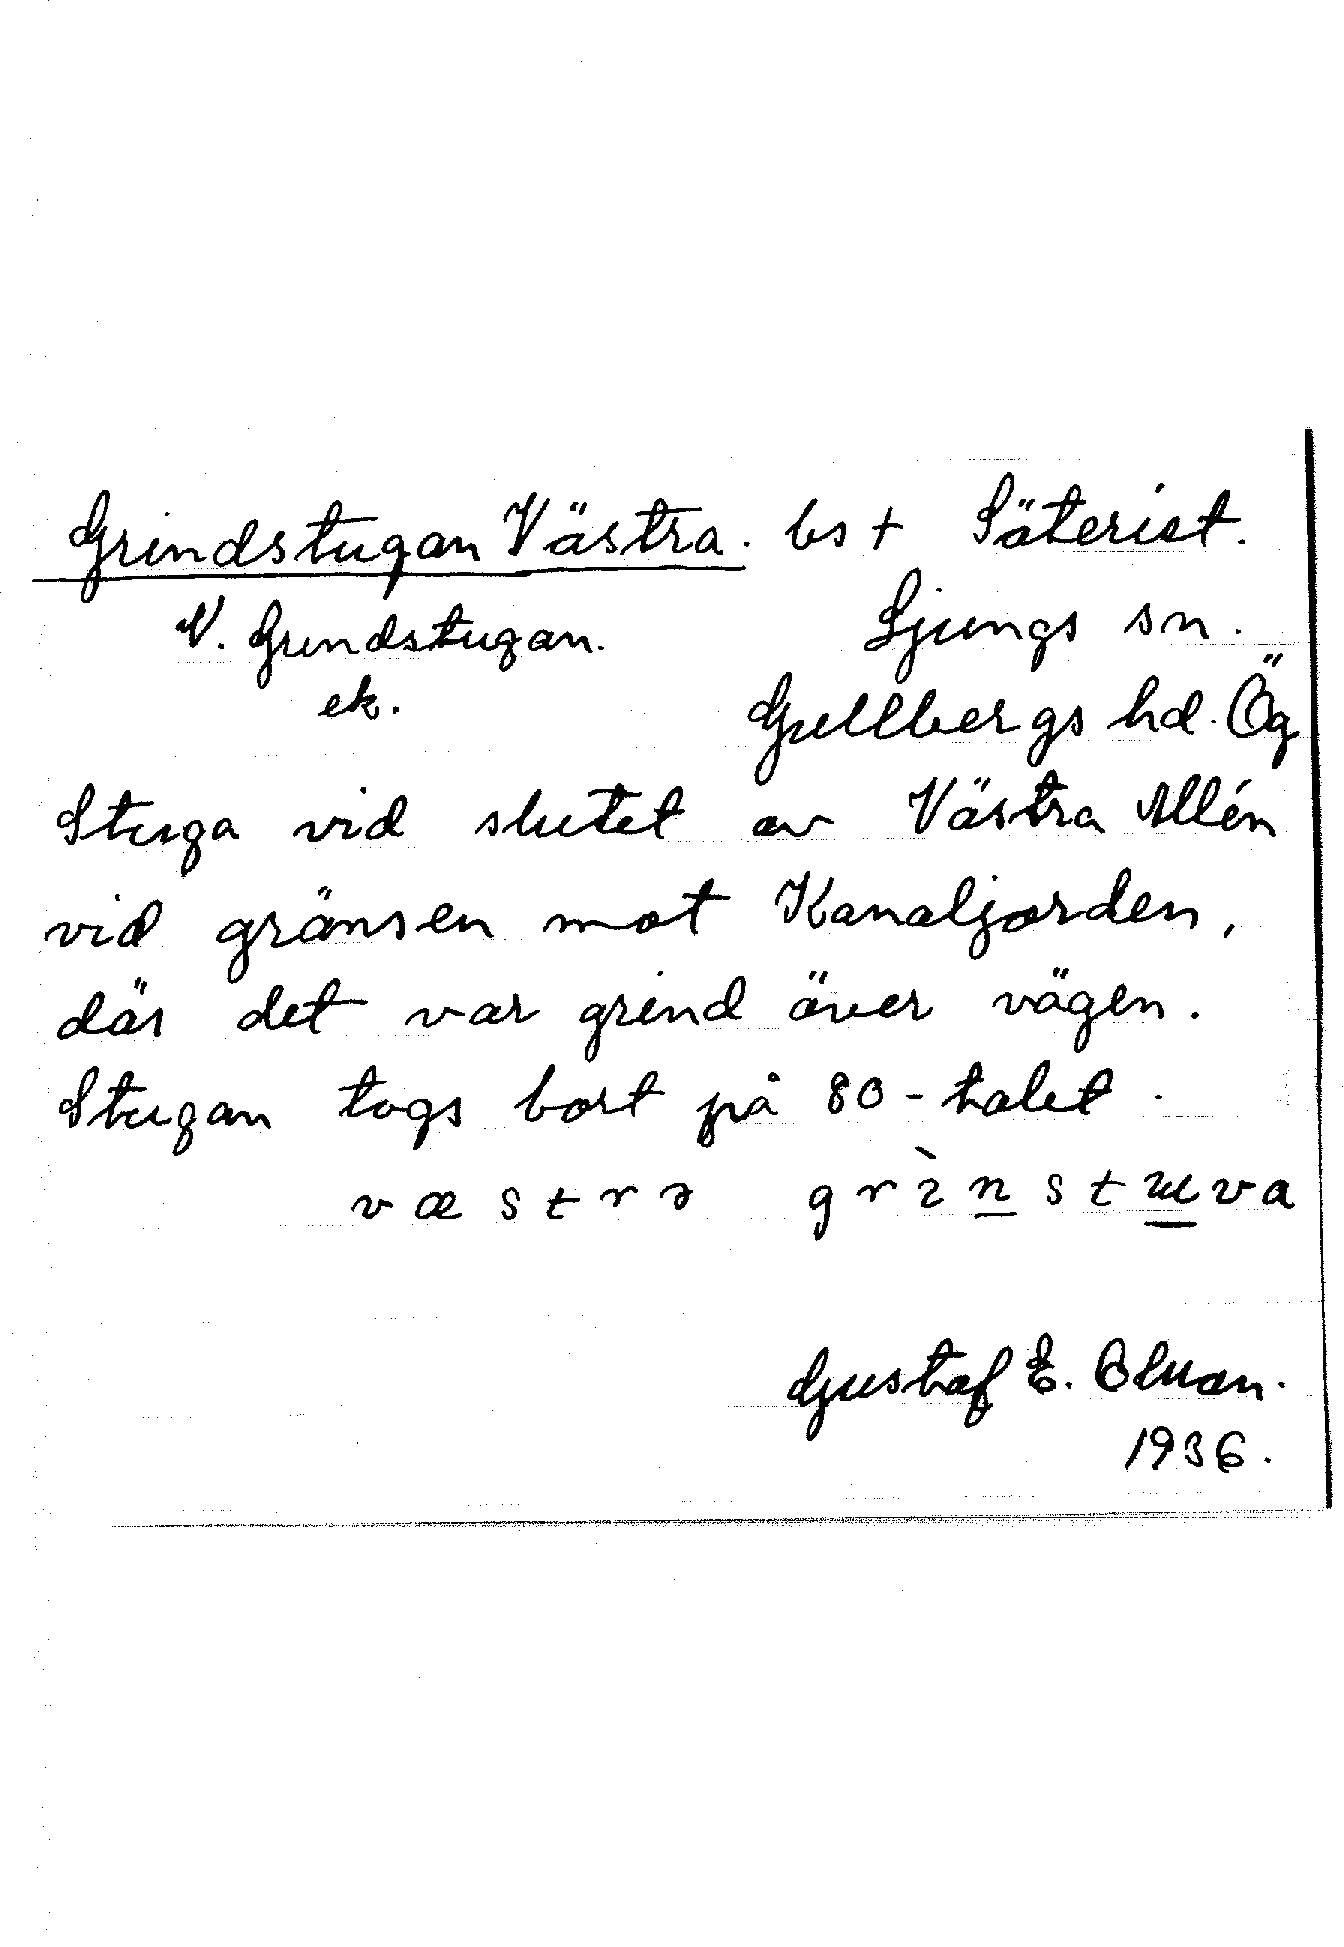 Grindstugan Västra. bs + Säteriet.
V. Grindstugan. Ljungs sn.
ek. Gullbergs hd. Ög
Stuga vid slutet av Västra Allén
vid gränsen mot Kanaljorden,
där det var grind över vägen.
Stugan togs bort på 80-talet.
væstrə grìnstuva
Gustaf E.
1936.